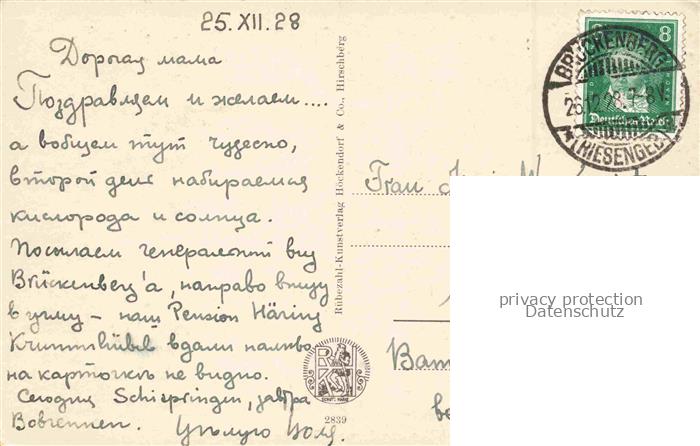 25.XII.28
Дорогая мама
Поздравляем и желаем....
а вобщем тут чудесно,
второй день набираемся
кислорода и солнца.
Посылаем генеральный вид
Brückenberg'а, направо внизу
в углу – наш Pension Häring
Krummhübel вдали налево
на карточкѣ не видно.
Сегодня Schispringen, завтра
Bobrennen. Целую
Rübezahl-Kunstverlag Höckendorf & Co., Hirschberg
2839
8
BRÜCKENBERG
26.12.28.7-8V.
(RIESENGEB.)
Deutsches Reich
Frau
privacy protection
Datenschutz